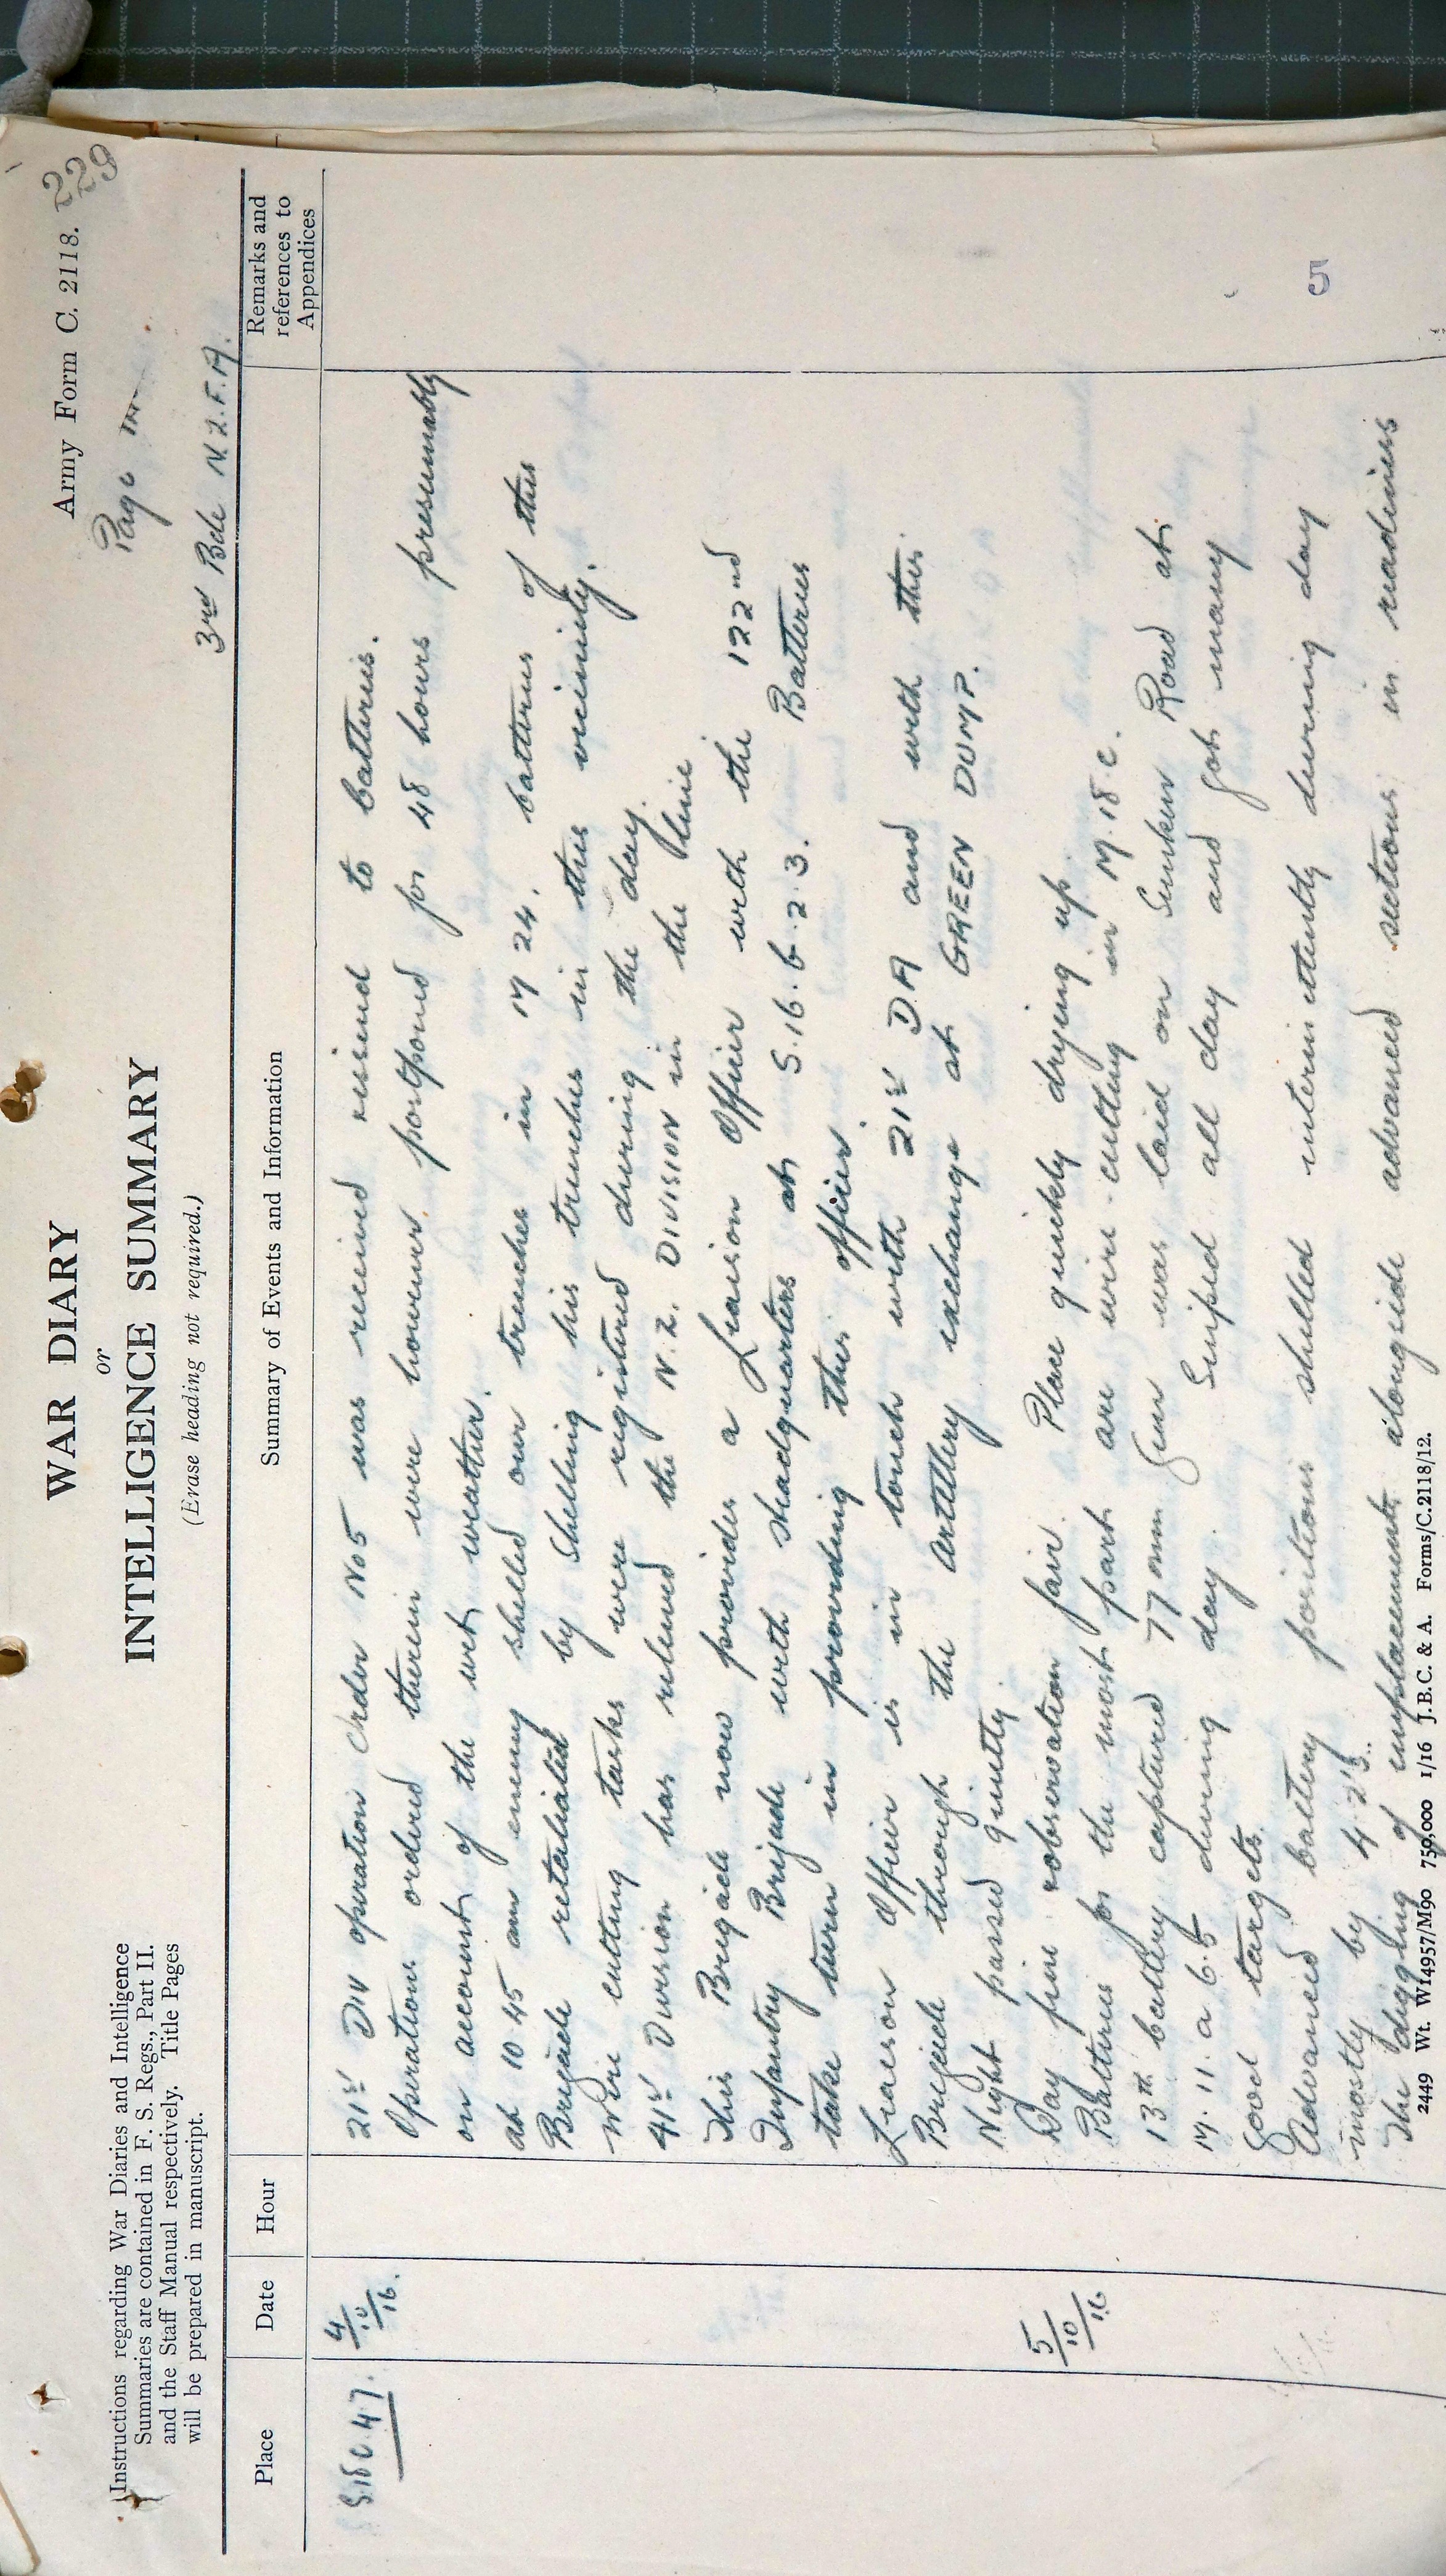 Army Form C. 2118.
229
WAR DIARY
or
INTELLIGENCE SUMMARY
(Erase heading not required.)
Page
3rd Bde N.Z.F.A.
Instructions regarding War Diaries and Intelligence
Summaries are contained in F. S. Regs., Part II.
and the Staff Manual respectively. Title Pages
will be prepared in manuscript.
Place
Date
Hour
Summary of Events and Information
Remarks and
references to
Appendices
4/10/16.
21st Div operation Order No 5 was received issued to batteries.
Operations ordered therein were however postponed for 48 hours presumably
on account of the wet weather.
at 10.45 am enemy shelled our trenches in M 24, batteries of this
Brigade retaliated by shelling his trenches in this vicinity.
Wire cutting tasks were registered during the day.
41st Division has relieved the N.Z. DIVISION in the line
This Brigade now provides a Liaison Officer with the 122nd
Infantry Brigade with Headquarters at S.16.b.2.3. Batteries
take turn in providing this officer.
Liaison Officer is in touch with 21st D.A and with this
Brigade through the artillery exchange at GREEN DUMP.
Night passed quietly.
5/10/16
Day fine observation fair. Place quickly drying up.
Batteries for the most part are wire-cutting in M.18.c.
13th battery captured 77mm Gun was laid on Sunken Road at
M.11.a.6.5 during day. Sniped all day and got many
good targets.
Advanced battery positions shelled intermittently during day
mostly by 4.2's.
The digging of emplacements alongside advanced sections in readiness
5
2449 Wt. W14957/M90 750,000 1/16 J.B.C. & A. Forms/C.2118/12.